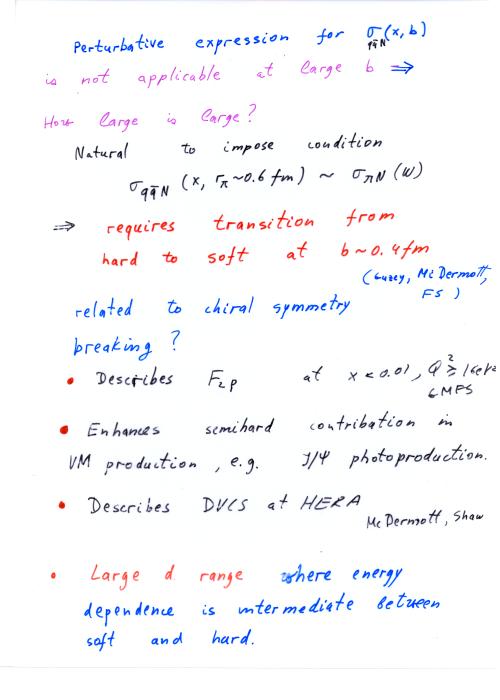 Perturbative expression for σ_{qq̄N}(x, b)
is not applicable at large b ⇒
How large is large?
Natural to impose condition
σ_{qq̄N} (x, r_π~0.6 fm) ~ σ_{πN} (W)
⇒ requires transition from
hard to soft at b~0.4fm
(Guzey, McDermott,
FS)
related to chiral symmetry
breaking ?
• Describes F_{2p} at x<0.01, Q² ≥ 1GeV²
GMFS
• Enhances semihard contribution in
VM production, e.g. J/Ψ photoproduction.
• Describes DVCS at HERA
McDermott, Shaw
• Large d range where energy
dependence is intermediate between
soft and hard.